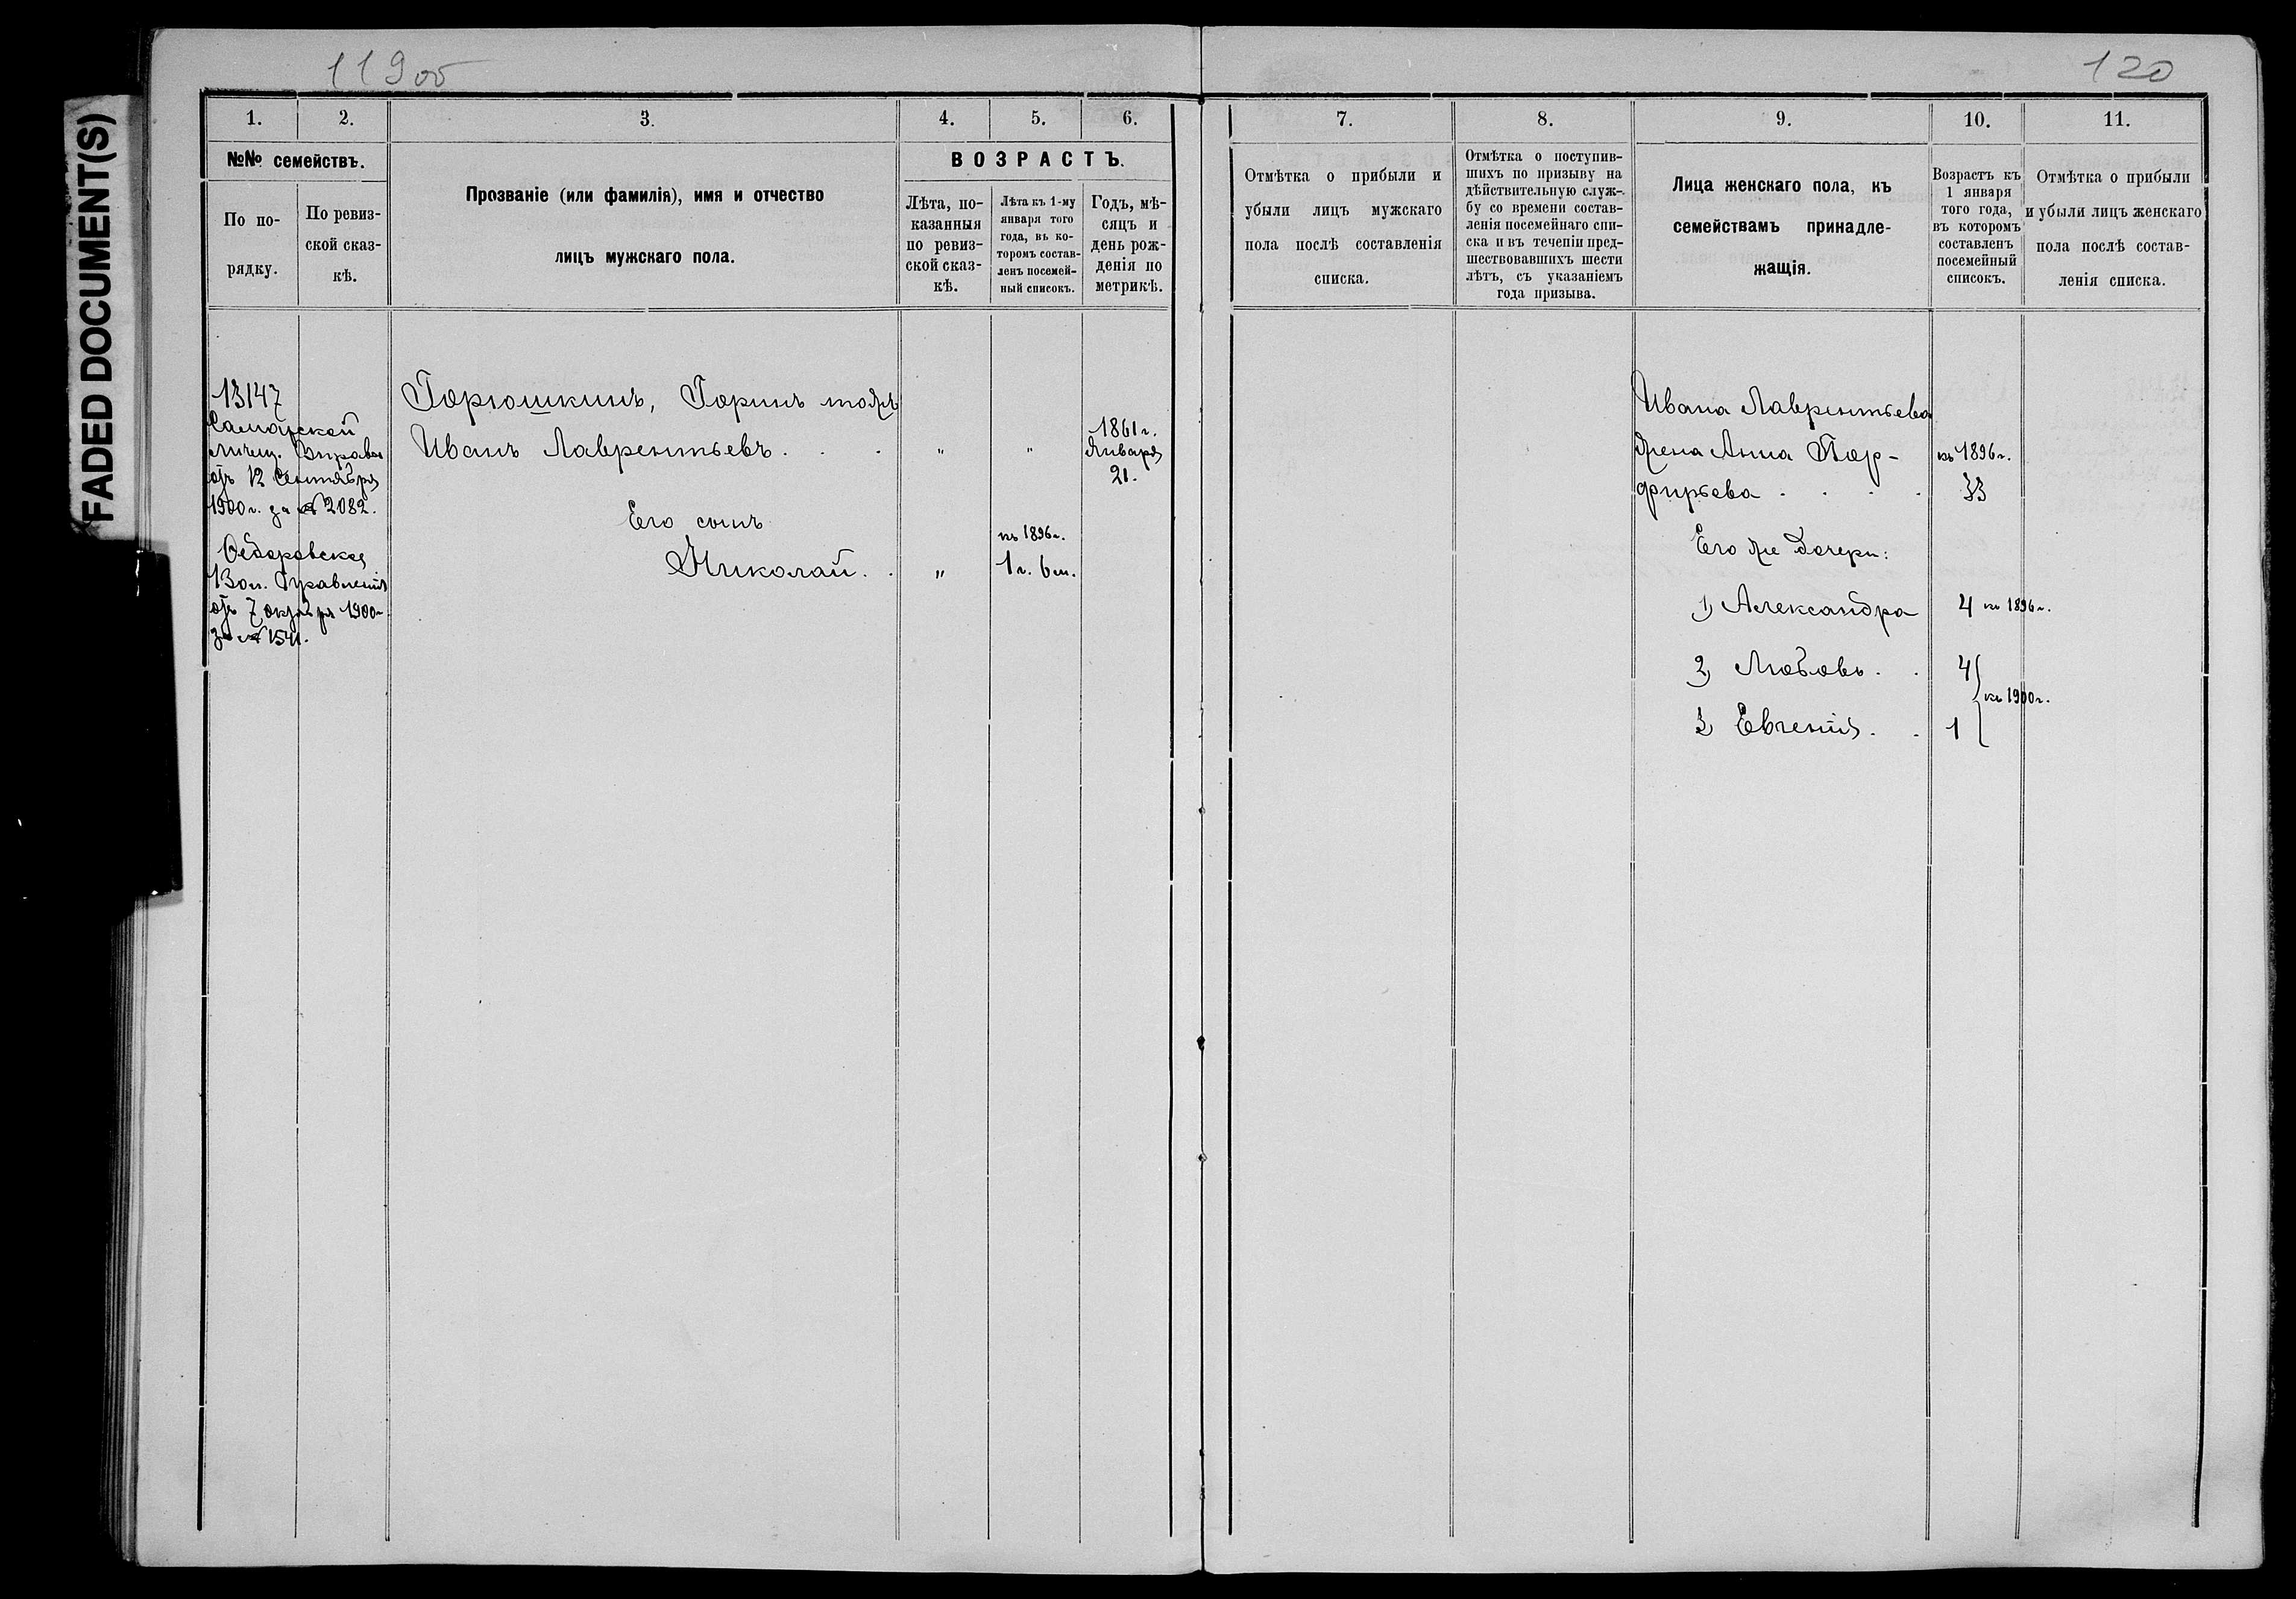 FADED DOCUMENT(S)
119об
120
1.
2.
3.
4.
5.
6.
7.
8.
9.
10.
11.
№№ семействъ.
По по-
рядку.
По ревиз-
ской сказ-
кѣ.
Прозваніе (или фамилія), имя и отчество
лицъ мужскаго пола.
ВОЗРАСТЪ.
Лѣта, по-
казанныя
по ревиз-
ской сказ-
кѣ.
Лѣта къ 1-му
января того
года, въ ко-
торомъ состав-
ленъ посемей-
ный списокъ.
Годъ, мѣ-
сяцъ и
день рож-
денія по
метрикѣ.
Отмѣтка о прибыли и
убыли лицъ мужскаго
пола послѣ составленія
списка.
Отмѣтка о поступив-
шихъ по призыву на
дѣйствительную служ-
бу со времени состав-
ленія посемейнаго спи-
ска и въ теченіи пред-
шествовавшихъ шести
лѣтъ, съ указаніемъ
года призыва.
Лица женскаго пола, къ
семействамъ принадле-
жащія.
Возрастъ къ
1 января
того года,
въ которомъ
составленъ
посемейный
списокъ.
Отмѣтка о прибыли
и убыли лицъ женскаго
пола послѣ состав-
ленія списка.
13147
Самарской
мѣщ. Управы
отъ 12 Сентября
1900 г. за № 2082.
Ѳедоровское
Вол. Правленія
отъ 7 октября 1900 г.
за № 1541.
Горюшкинъ, Горинъ тожъ
Иванъ Лаврентьевъ . . . " "
1861 г.
Января
21.
Его сынъ
Николай . . "
къ 1896 г.
1 г. 6 м.
Ивана Лаврентьева
жена Анна Пор-
фирьева . . . .
къ 1896 г.
33
Его же дочери:
1) Александра 4 къ 1896 г.
2) Любовь . . 4
къ 1900 г.
3) Евгенія . . 1